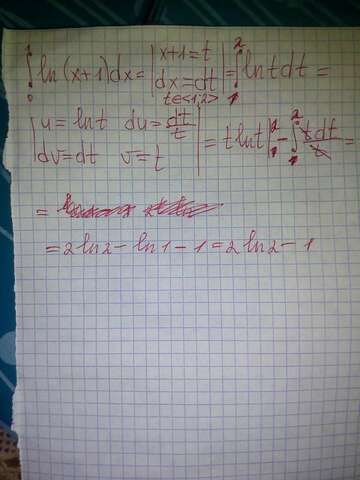 ∫₀¹ ln(x+1)dx = |x+1=t dx=dt t∈<1,2>| = ∫₁² ln t dt =
|u = ln t du = dt/t dv = dt v = t| = t ln t|₁² - ∫₁² t dt/t
=
= 2 ln 2 - ln 1 - 1 = 2 ln 2 - 1